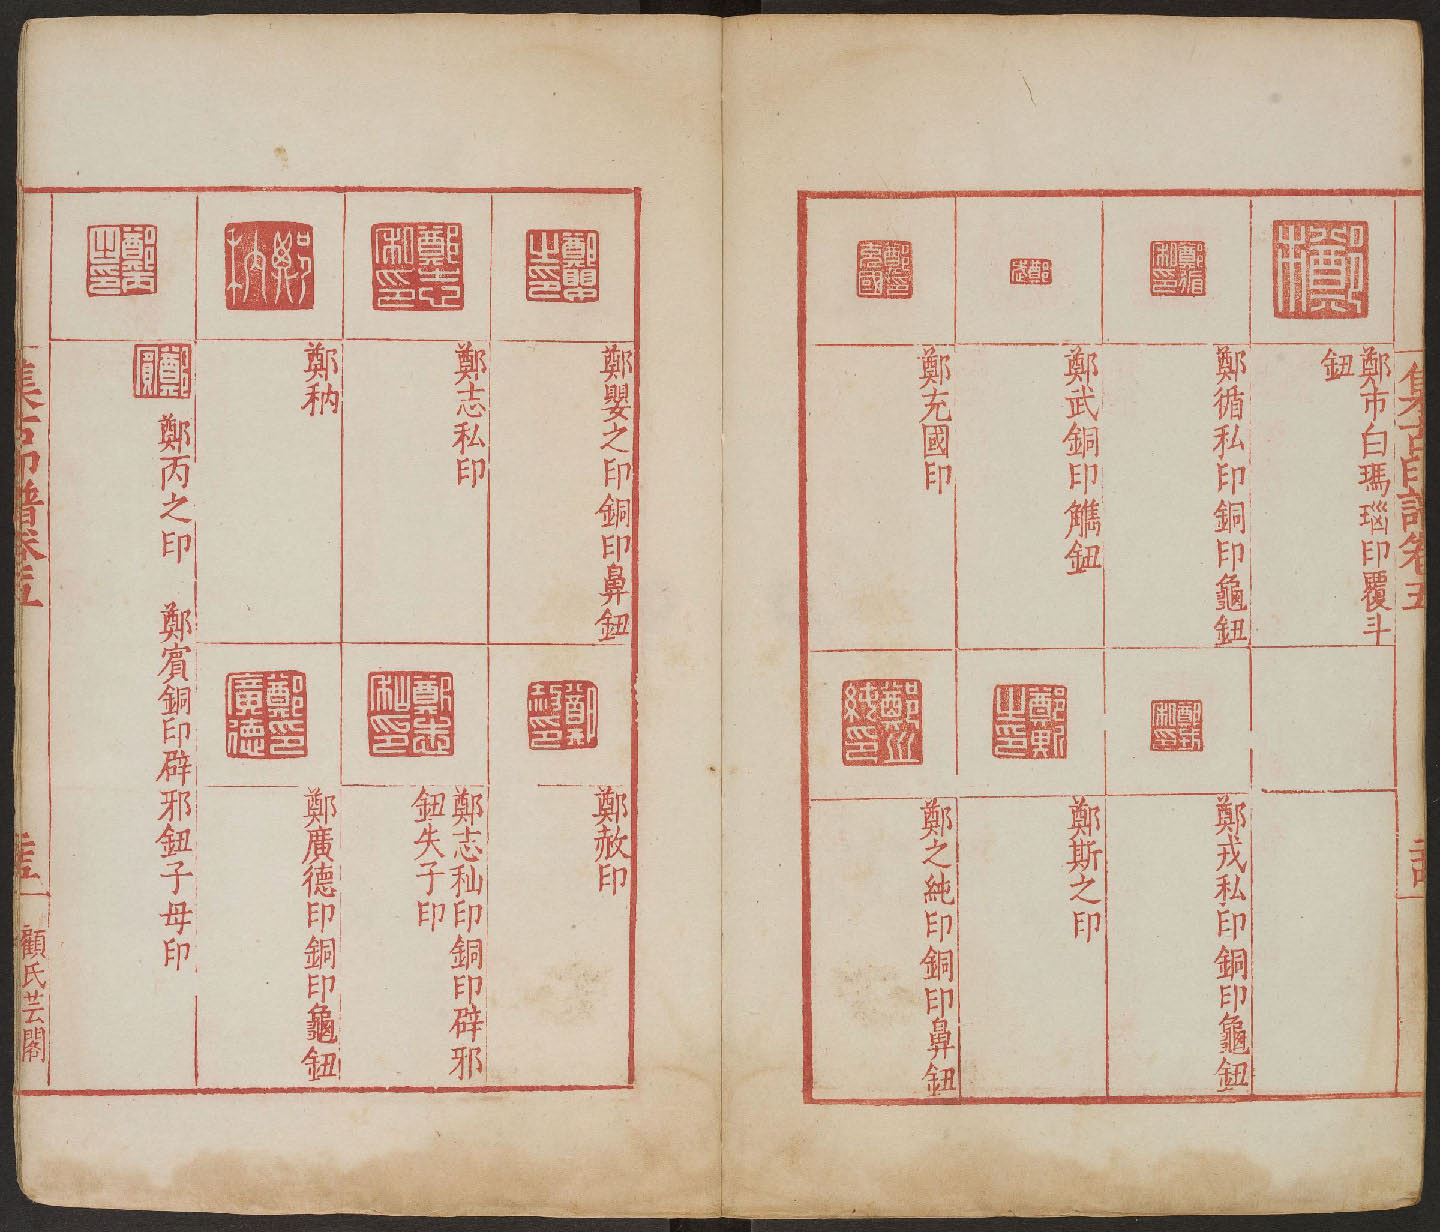 集古印譜卷五
鄭市白瑪瑙印覆斗
鈕
鄭循私印銅印龜鈕
鄭戎私印銅印龜鈕
鄭武銅印觹鈕
鄭斯之印
鄭充國印
鄭之純印銅印鼻鈕
鄭嬰之印銅印鼻鈕
鄭赦印
鄭志私印
鄭志私印銅印辟邪
鈕失子印
鄭䄲
鄭廣德印銅印龜鈕
鄭丙之印 鄭賓銅印辟邪鈕子母印
集古印譜卷五
顧氏芸閣